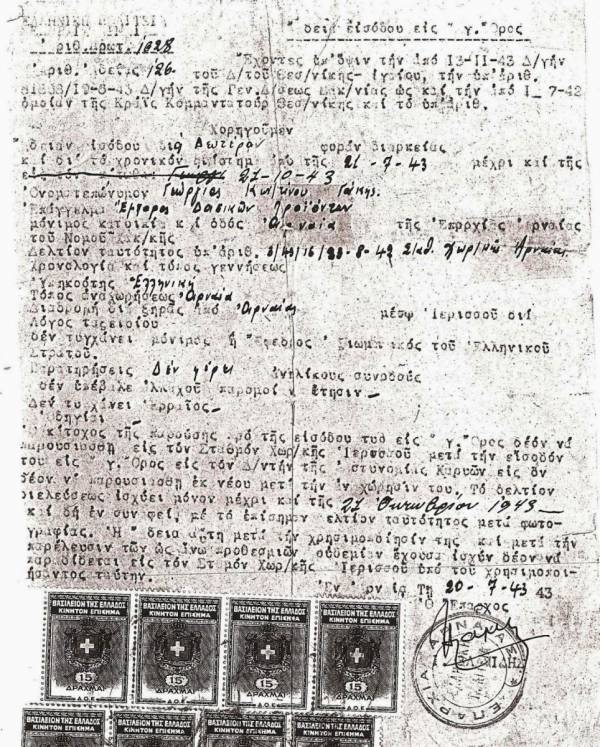 ΕΛΛΗΝΙΚΗ ΠΟΛΙΤΕΙΑ
"δεια εἰσόδου εἰς "γ. Ὄρος
ριθ. πρωτ. 1028
Ἔχοντες ὑπ' ὄψιν τὴν ἀπὸ 13-11-43 Δ/γὴν
ἀριθ. ἀδείας 126. τοῦ Δ/τοῦ Θεσ/νίκης- ἰγαίου, τὴν ὑπ' ἀριθ.
Δ/γὴν τῆς Γεν. Δ/σεως Μακ/νίας ὡς καὶ τὴν ἀπὸ 7-42
ὁμοίαν τῆς Κράϊς Κομμαντατούρ Θεσ/νίκης καὶ τὸ ὑπ' ἀριθ.
Χορηγοῦμεν
δειαν εἰσόδου διὰ Δωτέραν φορὰν διαρκείας
καὶ διὰ τὸ χρονικὸν διάστημα ἀπὸ τῆς 21-7-43 μέχρι καὶ τῆς
27-10-43
Ὀνοματεπώνυμον Γεώργιος Κων/τίνου Γάκης.
Ἐπάγγελμα Ἔμπορος Δασικῶν Προϊόντων
μόνιμος κατοικία καὶ ὁδός Ἀρναία τῆς Ἐπαρχίας Ἀρναίας
τοῦ Νομοῦ Χαλ/κῆς
Δελτίον ταυτότητος ὑπ' ἀριθ. Σταθ. Χωρ/κῆς Ἀρναίας
Χρονολογία καὶ τόπος γεννήσεως
Ὑπηκοότης Ἑλληνική
Τόπος ἀναχωρήσεως Ἀρναία
Διαδρομὴ διὰ ξηρᾶς ἀπὸ Ἀρναίας μέσῳ Ἱερισσοῦ διὰ
Λόγος ταξειδίου
δὲν τυγχάνει μόνιμος ἢ Ἔφεδρος ξιωματικὸς τοῦ Ἑλληνικοῦ
Στρατοῦ.
Παρατηρήσεις Δὲν φέρει ἀνηλίκους συνοδοὺς
δὲν ὑπέβαλε ἀλλαχοῦ παρομοί αἴτησιν-
Δὲν τυγχάνει Ἑβραῖος-
Ὁδηγίαι
κάτοχος τῆς παρούσης πρὸ τῆς εἰσόδου του εἰς "γ. Ὄρος δέον νὰ
παρουσιασθῇ εἰς τὸν Σταθμὸν Χωρ/κῆς Ἱερισσοῦ μετὰ τὴν εἴσοδόν
του εἰς "γ. Ὄρος εἰς τὸν Δ/ντὴν τῆς στυνομίας Καρυῶν εἰς ὃν
δέον ν' παρουσιασθῇ ἐκ νέου μετὰ τὴν ἀναχώρησίν του. Τὸ δελτίον
διελεύσεως ἰσχύει μόνον μέχρι καὶ τῆς 27 Ὀκτωβρίου 1943-
καὶ δὴ ἐν συν μὲ τὸ ἐπίσημον δελτίον ταυτότητος μετὰ φωτο-
γραφίας. Ἡ δεια αὕτη μετὰ τὴν χρησιμοποίησίν της καὶ μετὰ τὴν
παρέλευσιν τῶν ὡς ἄνω προθεσμιῶν οὐδεμίαν ἔχουσα ἰσχὺν δέον νὰ
παραδίδεται εἰς τὸν Στ μὸν Χωρ/κῆς Ἱερισσοῦ ὑπὸ τοῦ χρησιμοποι-
ήσαντος ταύτην.
Ἐν Ἀρναίᾳ Τῇ 20-7-43 43
Ὁ Ἔπαρχος
ΕΠΑΡΧΙΑ ΑΡΝΑΙΑΣ
ΒΑΣΙΛΕΙΟΝ ΤΗΣ ΕΛΛΑΔΟΣ ΒΑΣΙΛΕΙΟΝ ΤΗΣ ΕΛΛΑΔΟΣ ΒΑΣΙΛΕΙΟΝ ΤΗΣ ΕΛΛΑΔΟΣ ΒΑΣΙΛΕΙΟΝ ΤΗΣ ΕΛΛΑΔΟΣ
ΚΙΝΗΤΟΝ ΕΠΙΣΗΜΑ ΚΙΝΗΤΟΝ ΕΠΙΣΗΜΑ ΚΙΝΗΤΟΝ ΕΠΙΣΗΜΑ ΚΙΝΗΤΟΝ ΕΠΙΣΗΜΑ
15 15 15 15
ΔΡΑΧΜΑΙ ΔΡΑΧΜΑΙ ΔΡΑΧΜΑΙ ΔΡΑΧΜΑΙ
Δ.Ο.Ε. Δ.Ο.Ε. Δ.Ο.Ε. Δ.Ο.Ε.
ΒΑΣΙΛΕΙΟΝ ΤΗΣ ΕΛΛΑΔΟΣ ΒΑΣΙΛΕΙΟΝ ΤΗΣ ΕΛΛΑΔΟΣ ΒΑΣΙΛΕΙΟΝ ΤΗΣ ΕΛΛΑΔΟΣ ΒΑΣΙΛΕΙΟΝ ΤΗΣ ΕΛΛΑΔΟΣ
ΚΙΝΗΤΟΝ ΕΠΙΣΗΜΑ ΚΙΝΗΤΟΝ ΕΠΙΣΗΜΑ ΚΙΝΗΤΟΝ ΕΠΙΣΗΜΑ ΚΙΝΗΤΟΝ ΕΠΙΣΗΜΑ